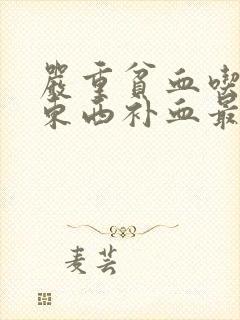 嚴重貧血喫
東西补血最
麦芸